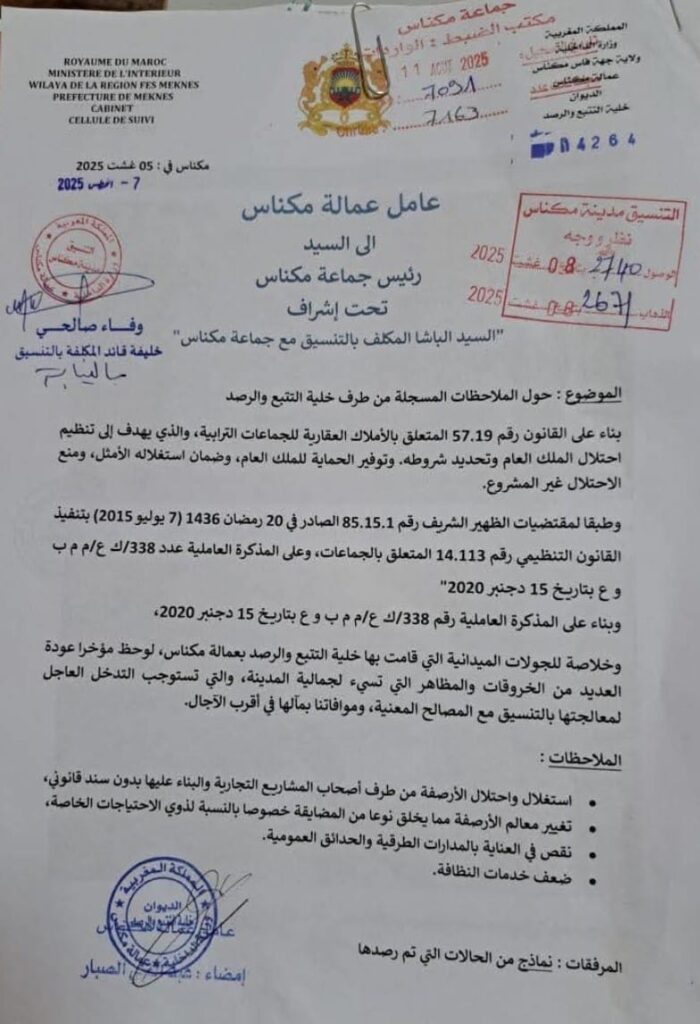 ROYAUME DU MAROC
MINISTERE DE L'INTERIEUR
WILAYA DE LA REGION FES MEKNES
PREFECTURE DE MEKNES
CABINET
CELLULE DE SUIVI
جماعة مكناس
مكتب الضبط : الواردات
11 AOUT 2025
7091
7163
المملكة المغربية
وزارة الداخلية
ولاية جهة فاس مكناس
عمالة مكناس
الديوان
خلية التتبع والرصد
4264
مكناس في : 05 غشت 2025
7 - غشت 2025
عامل عمالة مكناس
الى السيد
رئيس جماعة مكناس
تحت إشراف
"السيد الباشا المكلف بالتنسيق مع جماعة مكناس"
التنسيق مدينة مكناس
نظر ووجه
الوصول 2740 08 غشت 2025
الذهاب 2671 08 غشت 2025
المملكة المغربية
وفاء صالحي
خليفة قائد المكلفة بالتنسيق
بالنيابة
الموضوع : حول الملاحظات المسجلة من طرف خلية التتبع والرصد
بناء على القانون رقم 57.19 المتعلق بالأملاك العقارية للجماعات الترابية، والذي يهدف إلى تنظيم
احتلال الملك العام وتحديد شروطه. وتوفير الحماية للملك العام، وضمان استغلاله الأمثل، ومنع
الاحتلال غير المشروع.
وطبقا لمقتضيات الظهير الشريف رقم 85.15.1 الصادر في 20 رمضان 1436 (7 يوليو 2015) بتنفيذ
القانون التنظيمي رقم 14.113 المتعلق بالجماعات، وعلى المذكرة العاملية عدد 338/ك ع/م م ب
و ع بتاريخ 15 دجنبر 2020"
وبناء على المذكرة العاملية رقم 338/ك ع/م م ب و ع بتاريخ 15 دجنبر 2020،
وخلاصة للجولات الميدانية التي قامت بها خلية التتبع والرصد بعمالة مكناس، لوحظ مؤخرا عودة
العديد من الخروقات والمظاهر التي تسيء لجمالية المدينة، والتي تستوجب التدخل العاجل
لمعالجتها بالتنسيق مع المصالح المعنية، وموافاتنا بمآلها في أقرب الآجال.
الملاحظات :
• استغلال واحتلال الأرصفة من طرف أصحاب المشاريع التجارية والبناء عليها بدون سند قانوني،
• تغيير معالم الأرصفة مما يخلق نوعا من المضايقة خصوصا بالنسبة لذوي الاحتياجات الخاصة،
• نقص في العناية بالمدارات الطرقية والحدائق العمومية.
• ضعف خدمات النظافة.
المملكة المغربية
الديوان
خلية التتبع والرصد
عامل عمالة مكناس
إمضاء : الصبار
المرفقات : نماذج من الحالات التي تم رصدها